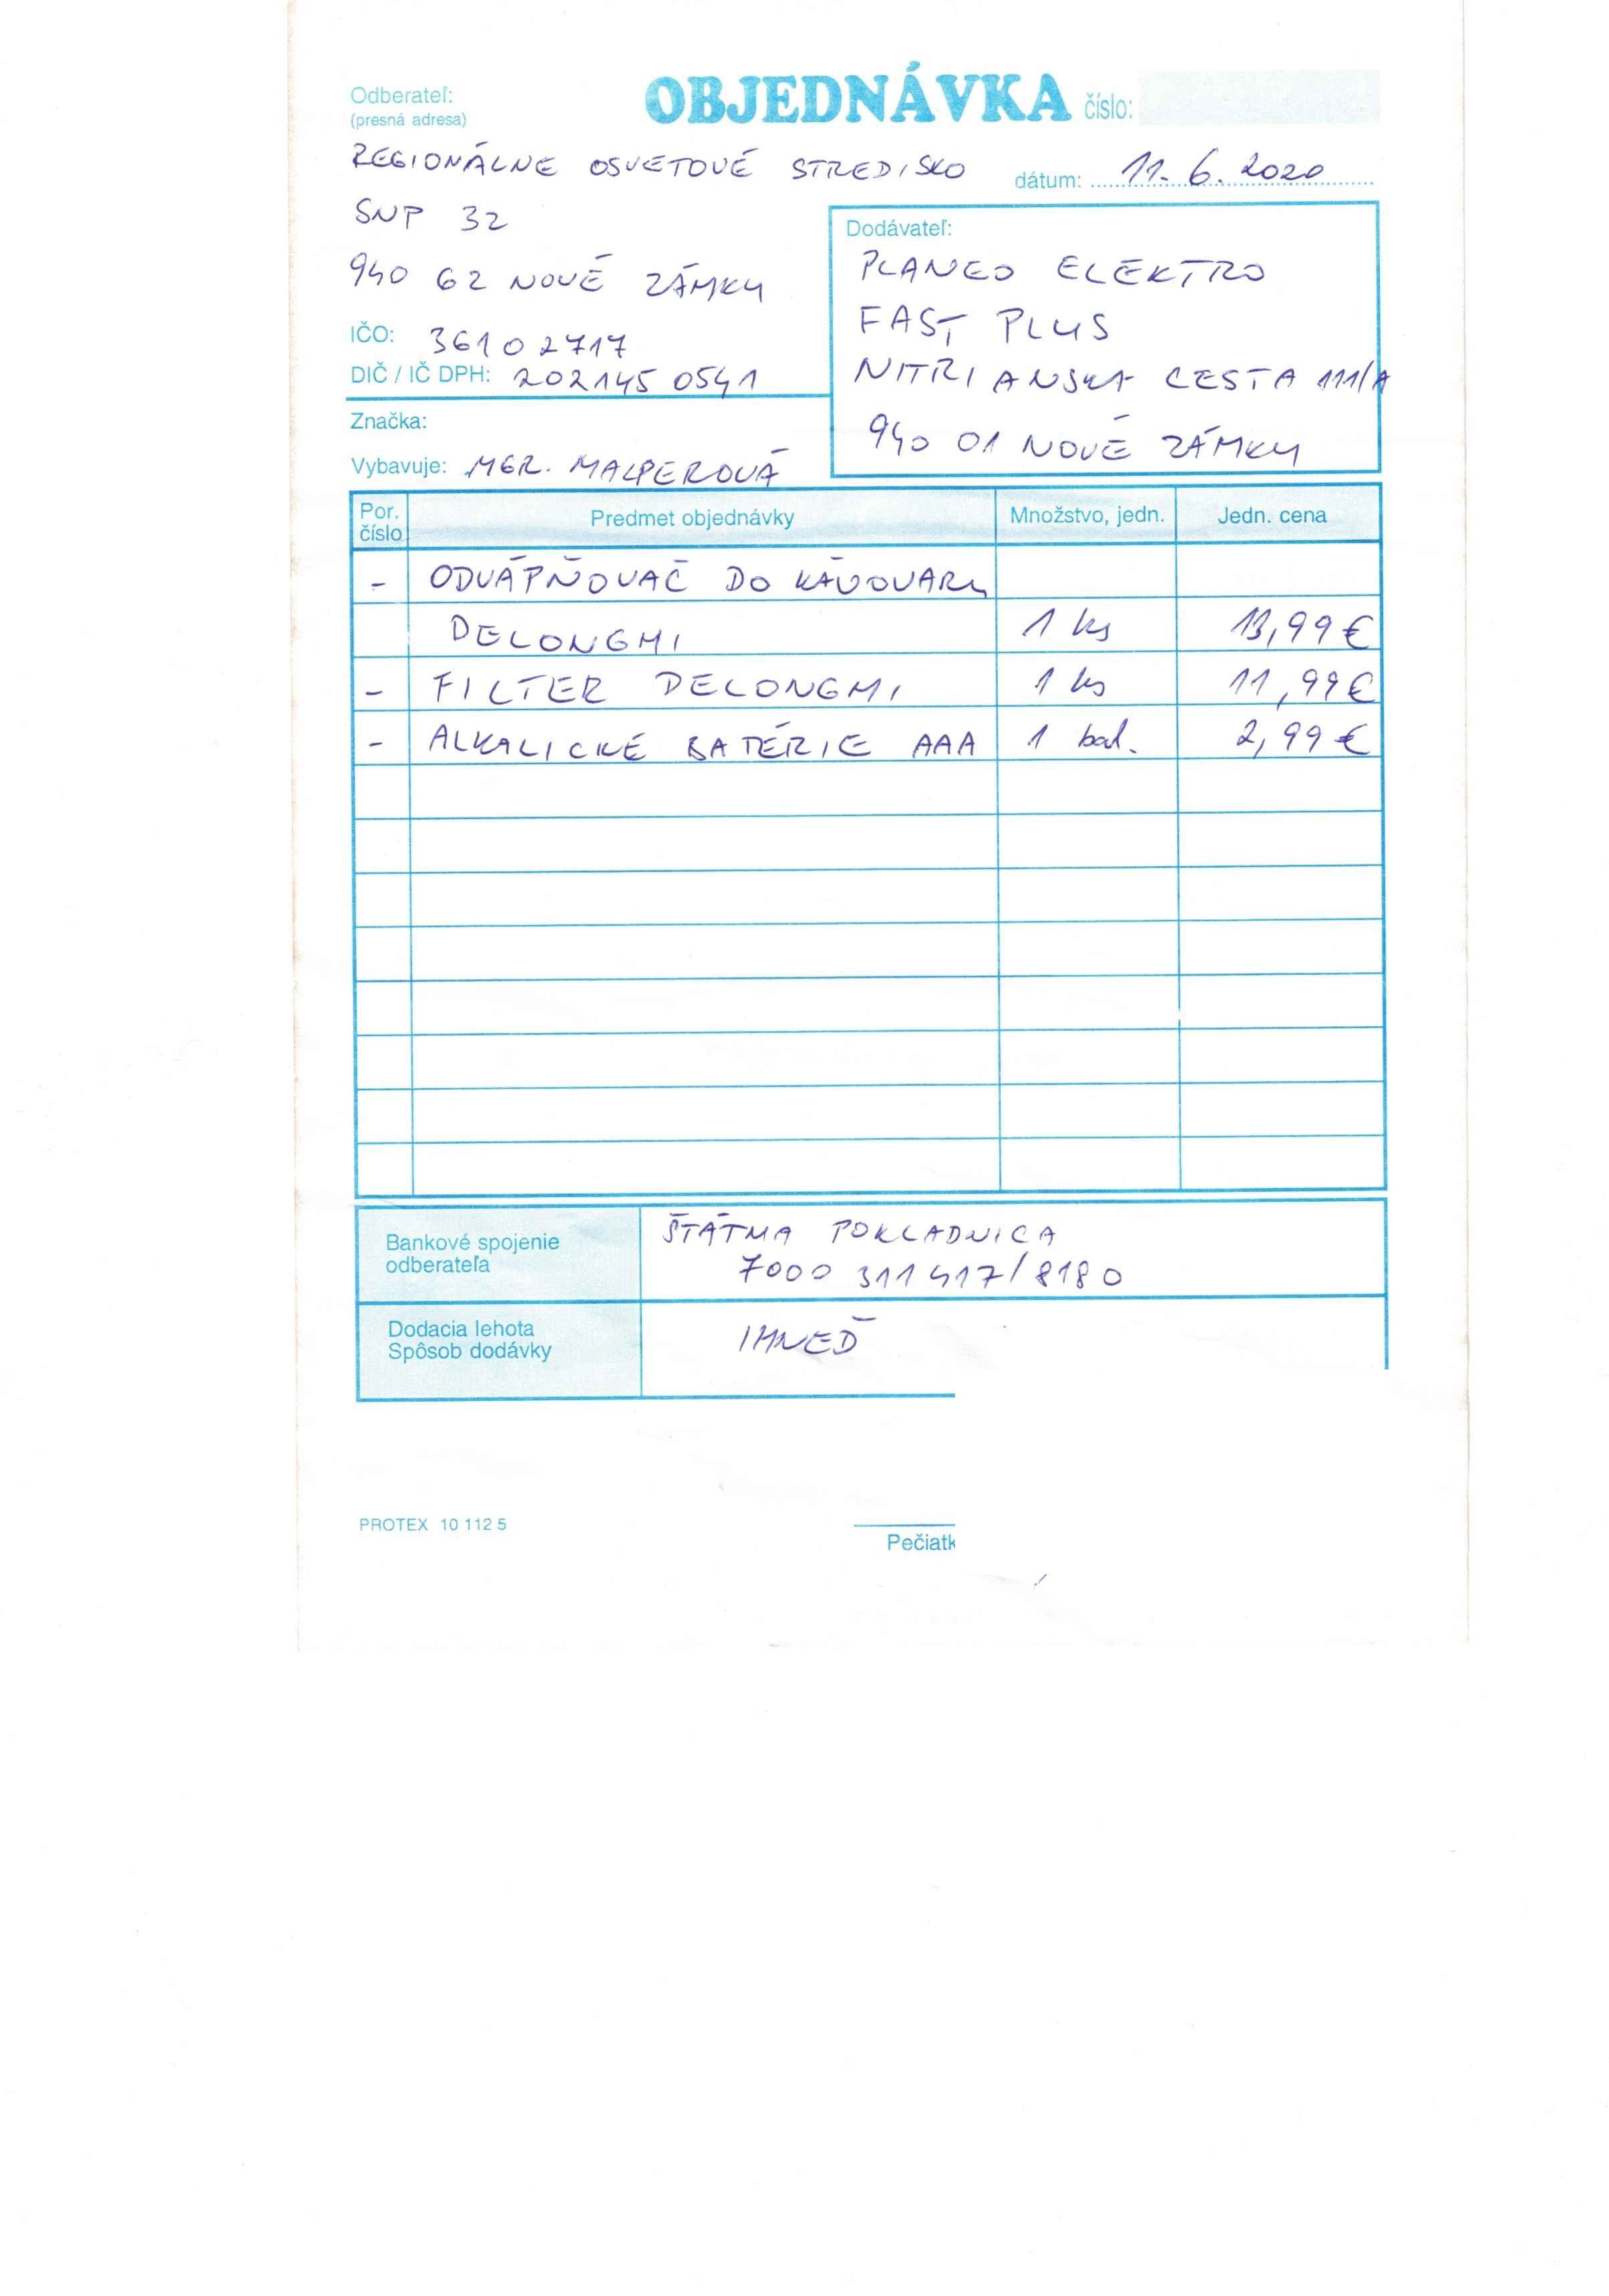 Odberateľ:
(presná adresa)
OBJEDNÁVKA číslo:
REGIONÁLNE OSVETOVÉ STREDISKO
dátum: 11. 6. 2020
SNP 32
940 62 NOVÉ ZÁMKY
IČO: 36102717
DIČ / IČ DPH: 202145 0541
Značka:
Vybavuje: MGR. MALPEROVÁ
Dodávateľ:
PLANEO ELEKTRO
FAST PLUS
NITRIANSKA CESTA 111/A
940 01 NOVÉ ZÁMKY
Por. číslo Predmet objednávky Množstvo, jedn. Jedn. cena
- ODVÁPŇOVAČ DO KÁVOVARU
DELONGHI 1 ks 13,99€
- FILTER DELONGHI 1 ks 11,99€
- ALKALICKÉ BATÉRIE AAA 1 bal. 2,99€
Bankové spojenie
odberateľa
ŠTÁTNA POKLADNICA
7000 311417/8180
Dodacia lehota
Spôsob dodávky
IHNEĎ
PROTEX 10 112 5
Pečiatk